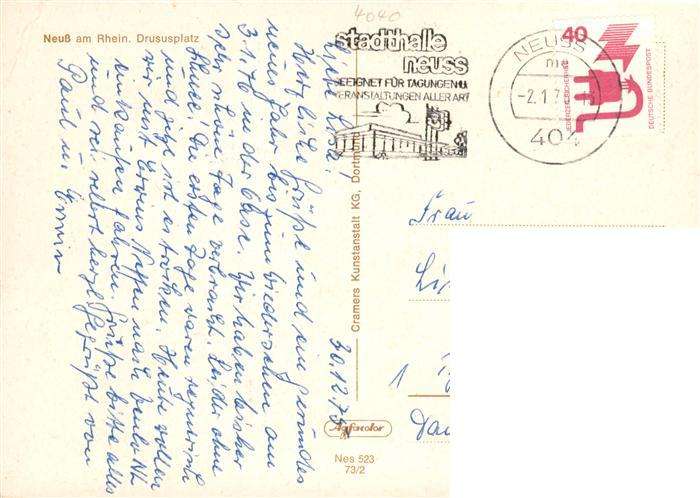 4040
Neuß am Rhein. Drususplatz
stadthalle
neuss
GEEIGNET FÜR TAGUNGEN U.
VERANSTALTUNGEN ALLER ART
NEUSS
-2.1.7
404
40
JEDERZEIT SICHERHEIT
DEUTSCHE BUNDESPOST
30.12.75
Liebe
Herzliche Grüße und ein gesundes
neues Jahr bis zum Wiedersehen am
3.1.76 in der Oase. Wir haben bisher
sehr schöne Tage verbracht. Leider ohne
Die ersten Tage waren regnerisch
und jetzt ist es trocken. Heute wollen
wir mit Neffen nach Venlo NL
einkaufen fahren. Grüße bitte alles
und sei selbst herzl. gegrüßt von
Paul u.
Cramers Kunstanstalt KG, Dortmund
Frau
1
Agfacolor
Nes 523
73/2